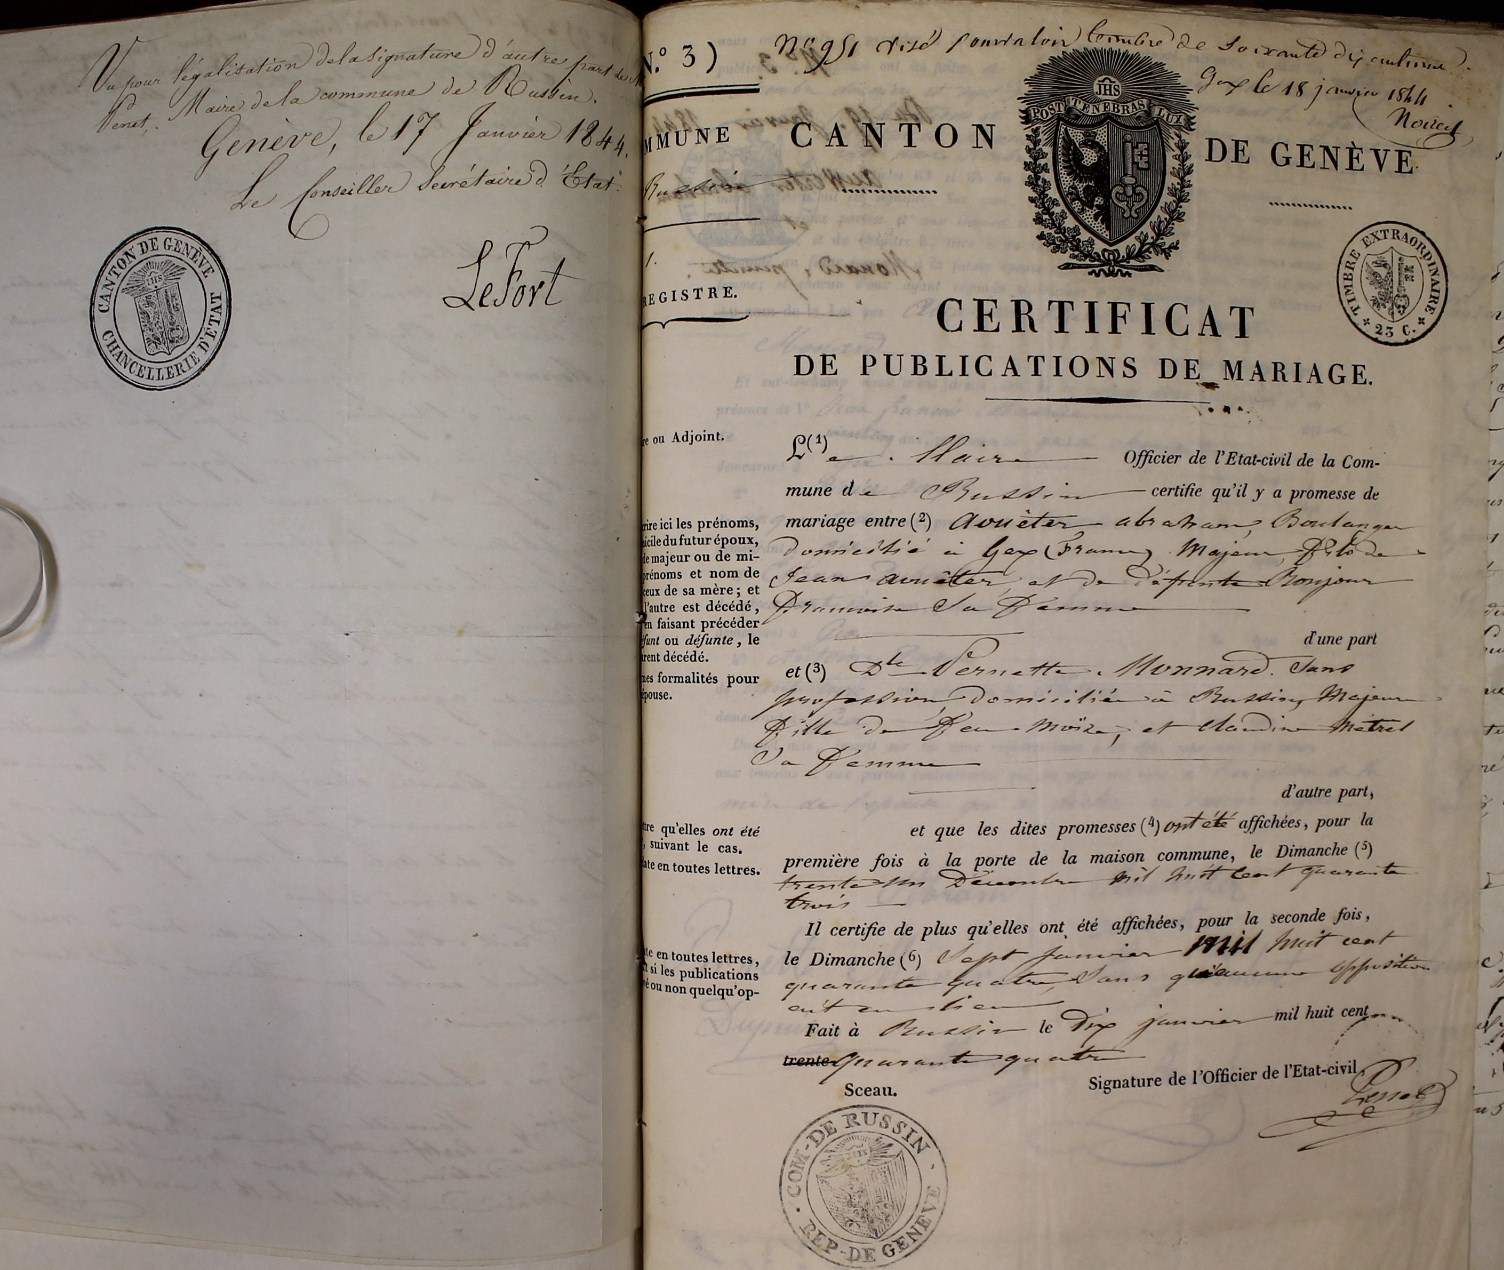 Vu pour légalisation de la signature d'autre part de M
Penet, Maire de la commune de Russin.
Genève, le 17 Janvier 1844.
Le Conseiller Secrétaire d'État
LeFort
CANTON DE GENÈVE
CHANCELLERIE D'ETAT
N.° 3)
N° 951 visé pour valoir timbre de soixante dix centimes.
Gex le 18 janvier 1844
MMUNE
Russin
1.
REGISTRE.
CANTON DE GENÈVE
JHS
POST TENEBRAS LUX
TIMBRE EXTRAORDINAIRE
23 C.
CERTIFICAT
DE PUBLICATIONS DE MARIAGE.
re ou Adjoint.
L(1)e Maire Officier de l'Etat-civil de la Com-
mune de Russin certifie qu'il y a promesse de
mariage entre (2) abraham, Boulanger
domicilié à Gex (France) Majeur, Fils de
Jean et de défunte Bonjour
Francoise Sa Femme
d'une part
et (3) Dlle Pernette Monnard. Sans
profession, domiciliée à Russin, Majeure
Fille de Feu Moïse, et Claudine Métral
Sa Femme
d'autre part,
et que les dites promesses (4) ont été affichées, pour la
première fois à la porte de la maison commune, le Dimanche (5)
trente un Décembre mil huit cent quarante
trois
Il certifie de plus qu'elles ont été affichées, pour la seconde fois,
le Dimanche (6) Sept Janvier mil huit cent
quarante quatre, Sans qu'aucune opposition
ait eu lieu
Fait à Russin le Dix janvier mil huit cent
trente quarante quatre
Sceau.
Signature de l'Officier de l'Etat-civil
Penet
COM. DE RUSSIN
REP. DE GENEVE
rire ici les prénoms,
icile du futur époux,
de majeur ou de mi-
prénoms et nom de
ceux de sa mère; et
l'autre est décédé,
en faisant précéder
éfunt ou défunte, le
arent décédé.
mes formalités pour
épouse.
ttre qu'elles ont été
, suivant le cas.
ate en toutes lettres.
te en toutes lettres,
t si les publications
vé ou non quelqu'op-